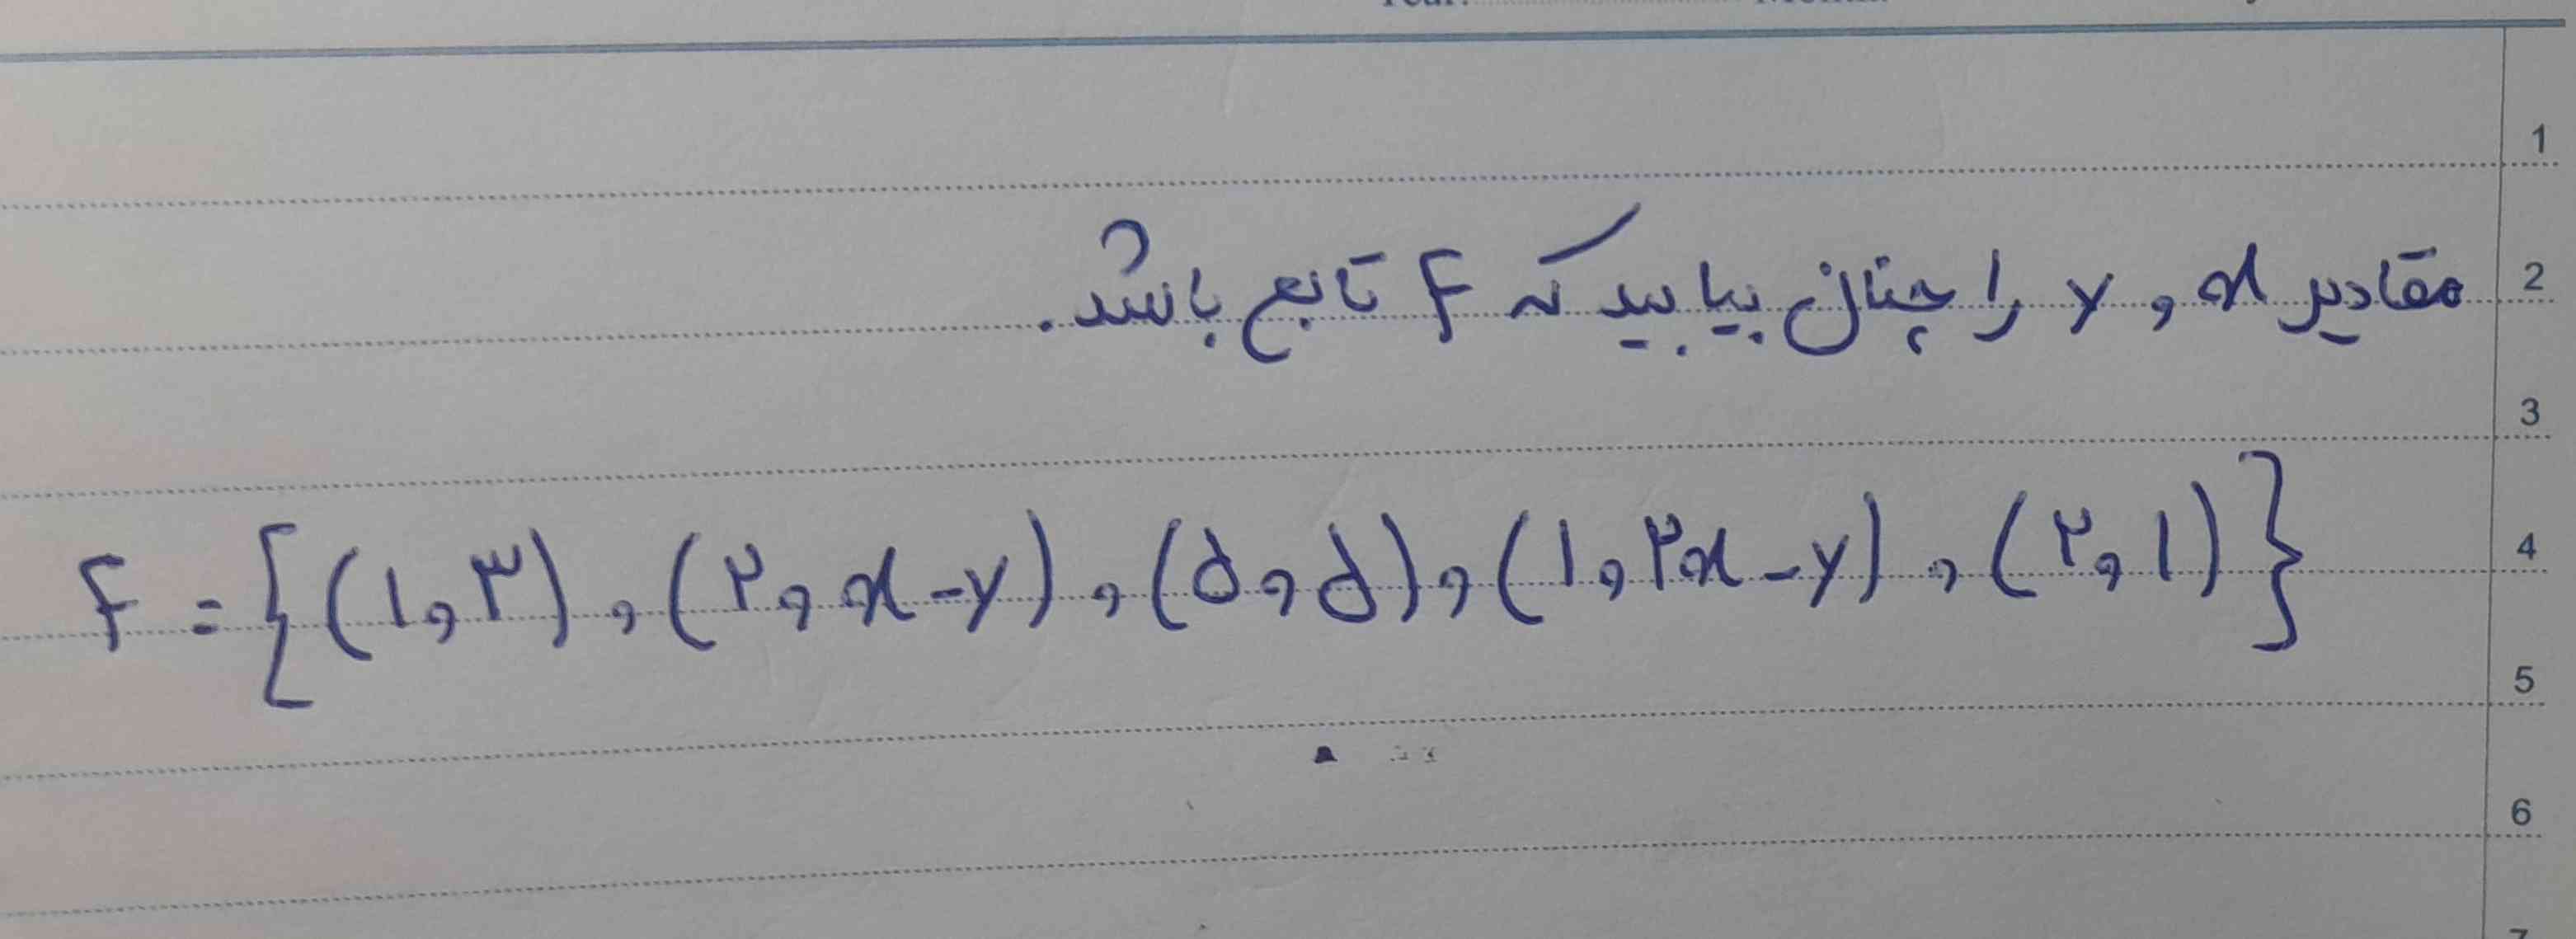 1
مقادیر x و y را چنان بیابید که f تابع باشد. 2
3
f = {(۱,۳), (۲, x-y), (۵,۵), (۱,۲x-y), (۲,۱)} 4
5
6